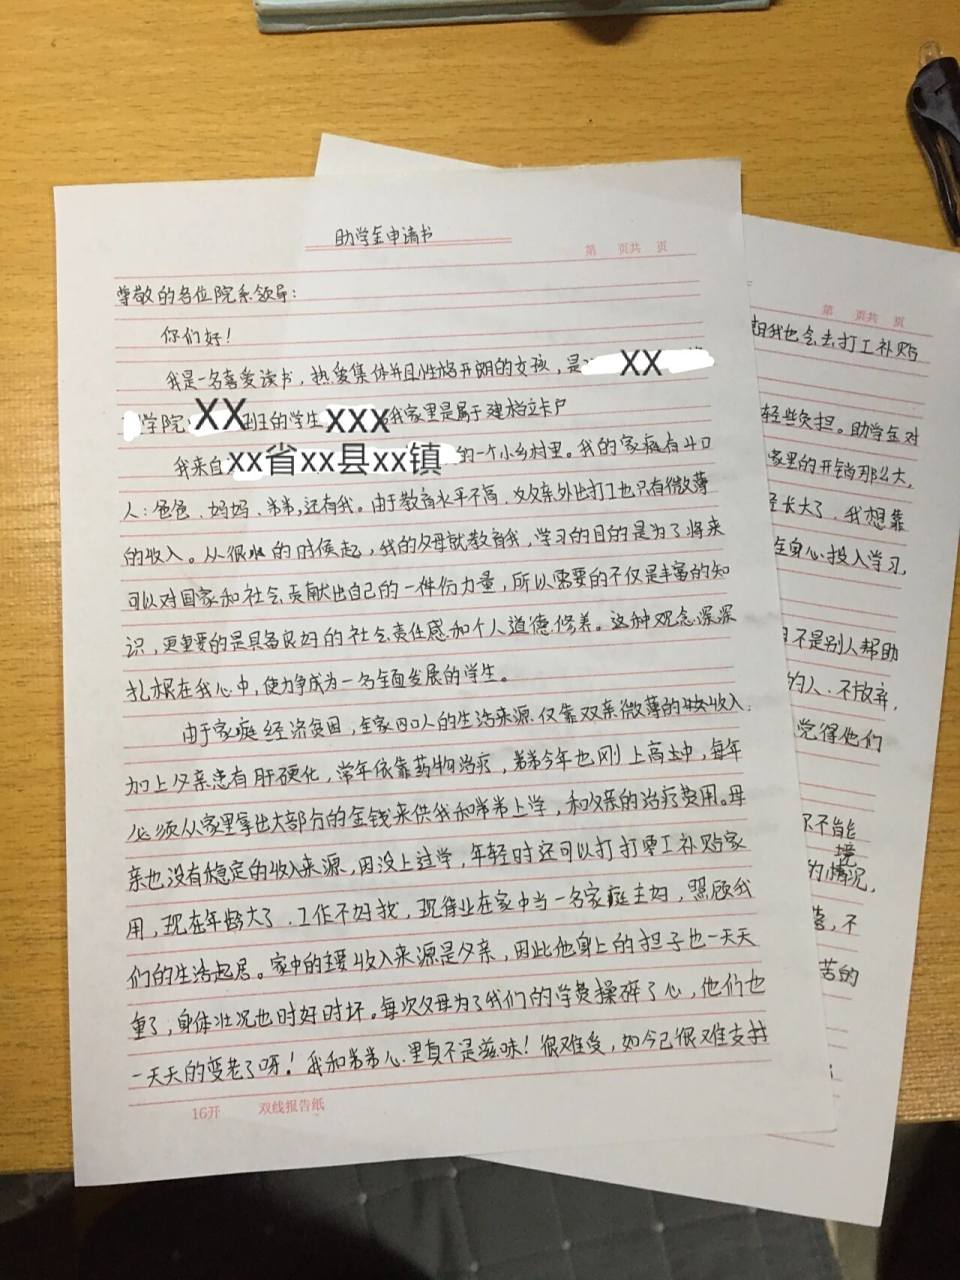 助学金申请书
第 页共 页
尊敬的各位院系领导:
你们好!
我是一名喜爱读书,热爱集体并且性格开朗的女孩,是 XX
学院 XX 班的学生 XXX 我家里是属于建档立卡户
我来自 xx省xx县xx镇 的一个小乡村里。我的家庭有四口
人:爸爸、妈妈、弟弟,还有我。由于教育水平不高,父亲外出打工也只有微薄
的收入。从很小的时候起,我的父母就教育我,学习的目的是为了将来
可以对国家和社会贡献出自己的一份力量,所以需要的不仅是丰富的知
识,更重要的是具备良好的社会责任感和个人道德修养。这种观念深深
扎根在我心中,使力争成为一名全面发展的学生。
由于家庭经济贫困,全家四口人的生活来源仅靠双亲微薄的收入.
加上父亲患有肝硬化,常年依靠药物治疗,弟弟今年也刚上高中,每年
必须从家里拿出大部分的金钱来供我和弟弟上学,和父亲的治疗费用。母
亲也没有稳定的收入来源,因没上过学,年轻时还可以打打零工补贴家
用,现在年龄大了,工作不好找,现待业在家中当一名家庭主妇,照顾我
们的生活起居。家中的主要收入来源是父亲,因此他身上的担子也一天天
重了,身体状况也时好时坏。每次父母为了我们的学费操碎了心,他们也
一天天的变老了呀!我和弟弟心里真不是滋味!很难受,如今已很难支持
16开 双线报告纸
第 页共 页
我也会去打工补贴
轻些负担。助学金对
家里的开销那么大,
长大了,我想靠
全身心投入学习,
不是别人帮助
的人.不放弃,
觉得他们
不能
境
的情况,
,不
苦的